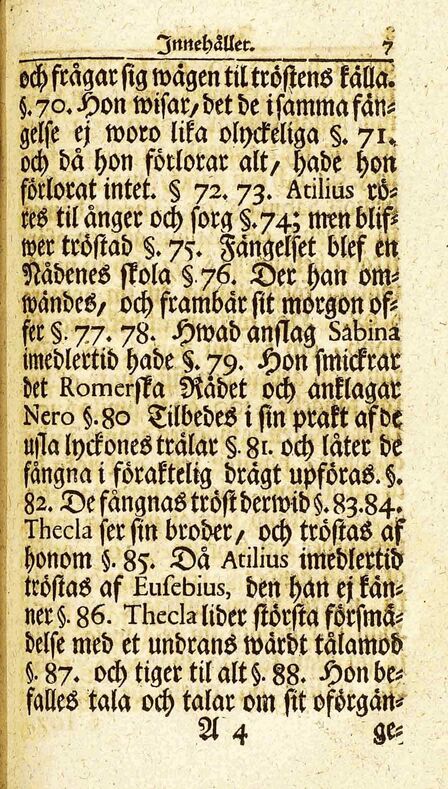 Innehållet. 7
och frågar sig wägen til tröstens källa.
§. 70. Hon wisar, det de i samma fän-
gelse ej woro lika olyckeliga §. 71.
och då hon förlorar alt, hade hon
förlorat intet. § 72. 73. Atilius rö-
res til ånger och sorg §. 74; men blif-
wer tröstad §. 75. Fängelset blef en
Nådenes skola §. 76. Der han om-
wändes, och frambär sit morgon of-
fer §. 77. 78. Hwad anslag Sabina
imedlertid hade §. 79. Hon smickrar
det Romerska Rådet och anklagar
Nero §. 80 Tilbedes i sin prakt af de
usla lyckones trälar §. 81. och låter de
fångna i föraktelig drägt upföras. §.
82. De fångnas tröst derwid §. 83. 84.
Thecla ser sin broder, och tröstas af
honom §. 85. Då Atilius imedlertid
tröstas af Eusebius, den han ej kän-
ner §. 86. Thecla lider största försmä-
delse med et undrans wärdt tålamod
§. 87. och tiger til alt §. 88. Hon be-
falles tala och talar om sit oförgän-
A 4 ge-